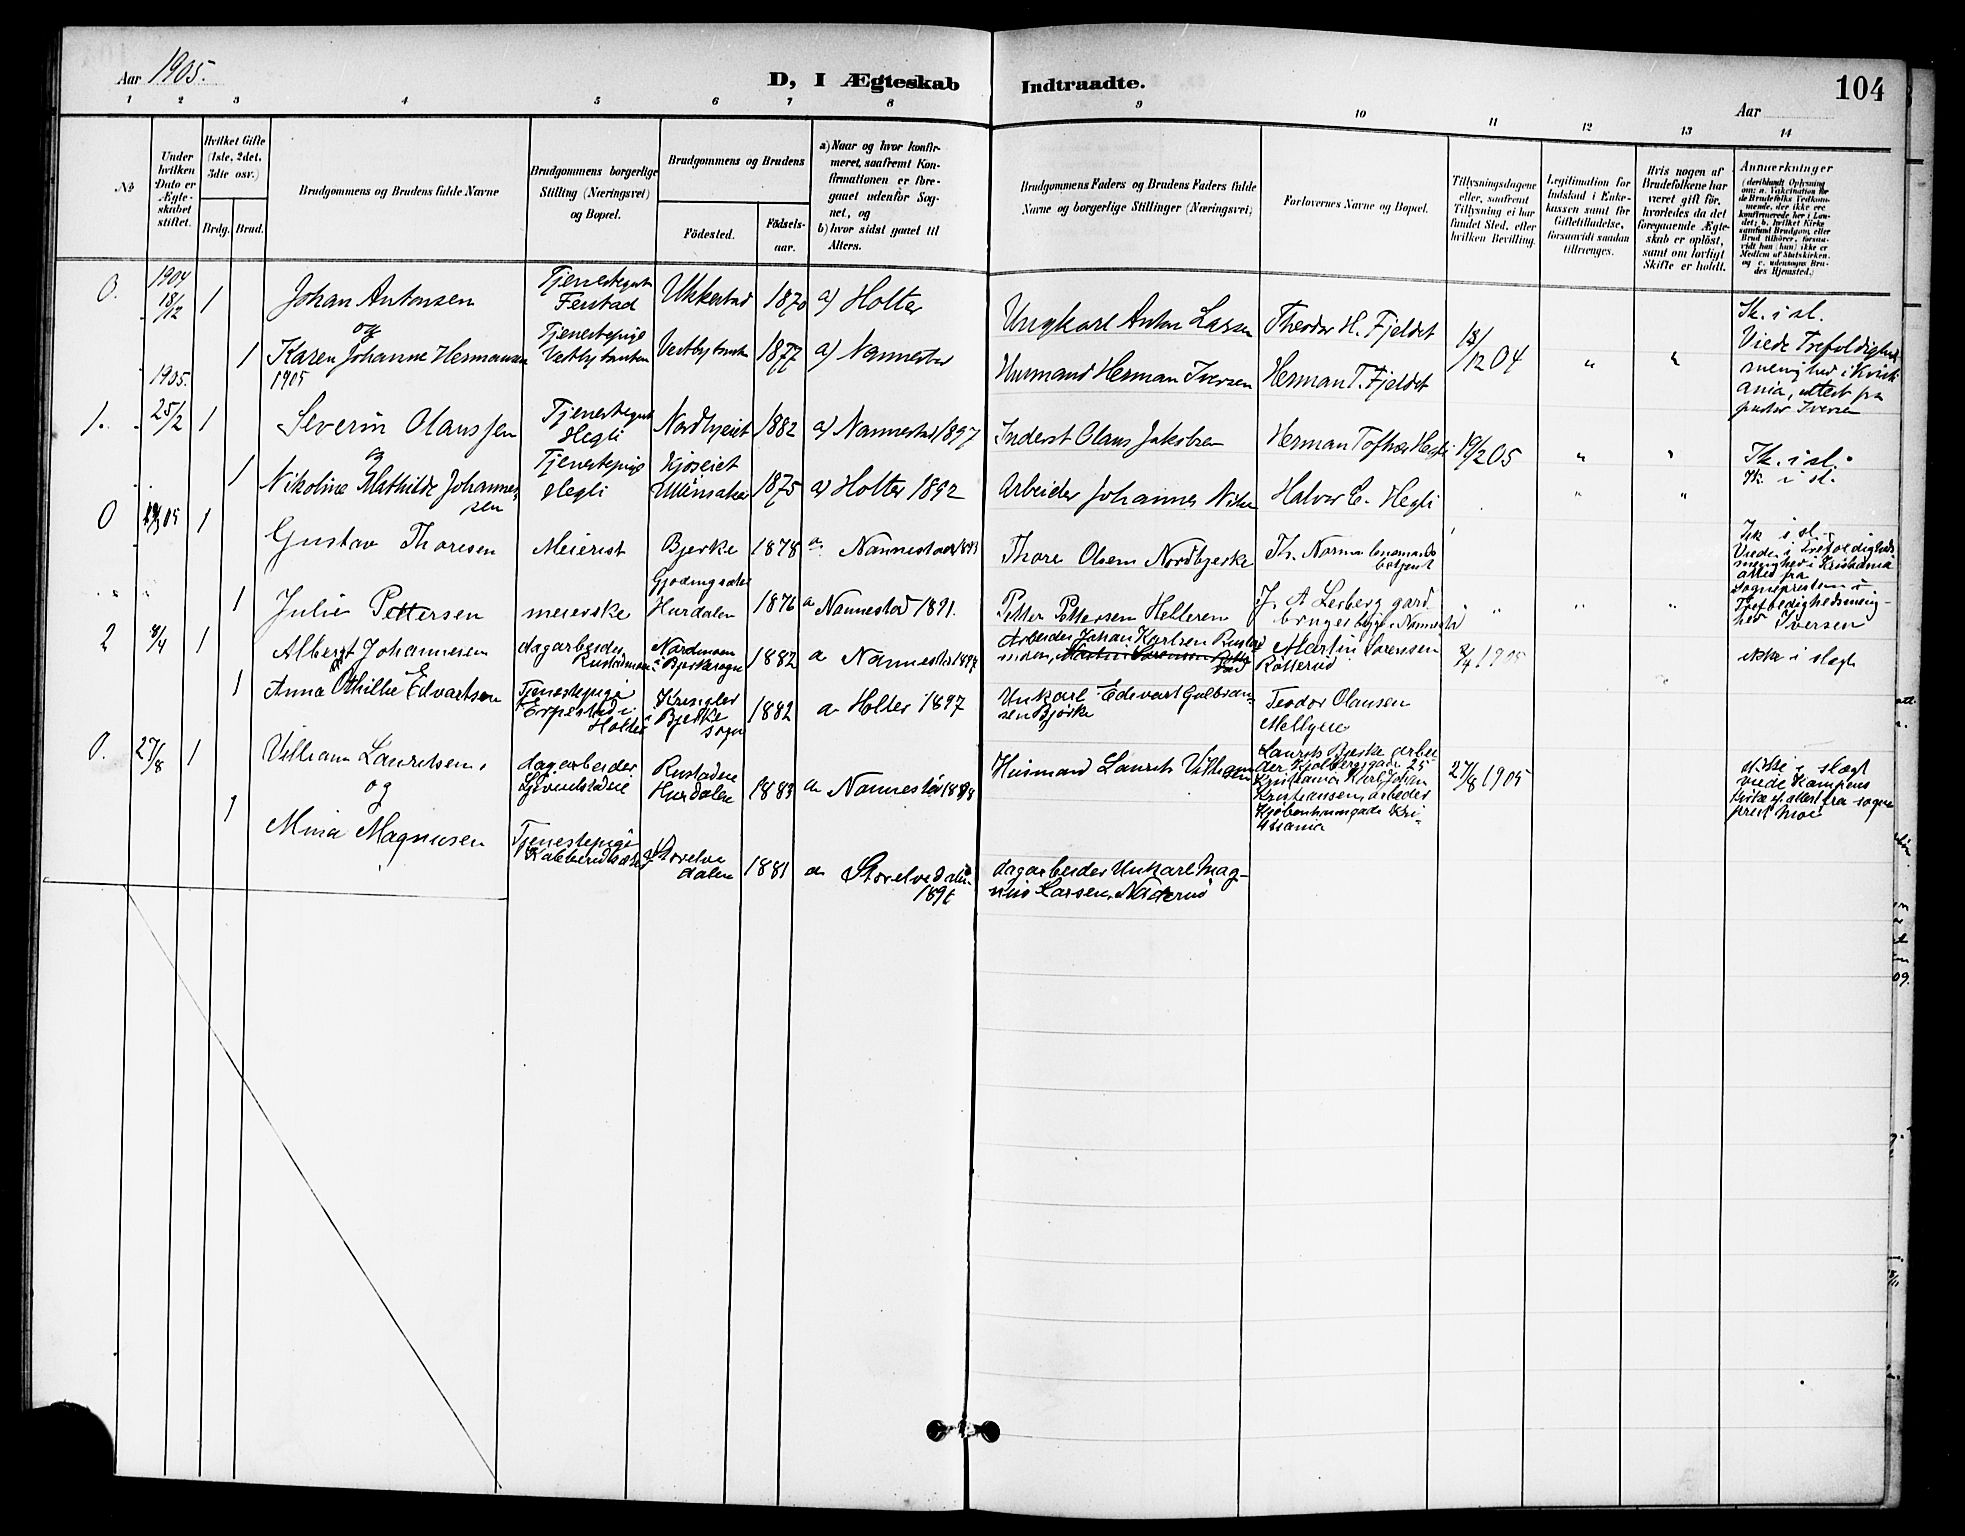 Aar 1905.
D, I Ægteskab Indtraadte.
Aar
104
1 2 3 4 5 6 7 8 9 10 11 12 13 14
No
Under hvilken Dato er Ægteskabet stiftet.
Hvilket Gifte (1ste, 2det, 3die osv.)
Brdg. Brud.
Brudgommens og Brudens fulde Navne
Brudgommens borgerlige Stilling (Næringsvei) og Bopæl.
Brudgommens og Brudens
Födested.
Födsels-aar.
a) Naar og hvor konfirmeret, saafremt Konfirmationen er foregaaet udenfor Sognet, og
b) hvor sidst gaaet til Alters.
Brudgommens Faders og Brudens Faders fulde Navne og borgerlige Stillinger (Næringsvei)
Forlovernes Navne og Bopæl.
Tillysningsdagene eller, saafremt Tillysning ei har fundet Sted, efter hvilken Bevilling.
Legitimation for Indskud i Enkekassen samt for Giftetilladelse, forsaavidt saadan tiltrænges.
Hvis nogen af Brudefolkene har været gift før, hvorledes da det foregaaende Ægteskab er opløst, samt om lovligt Skifte er holdt.
Anmærkninger
O. 1904 18/12 1 Johan Antonsen Tjenestegut Ferstad Ukkestad 1870 a) Holter Ungkarl Anton Larsen Theodor H. Fjeldet 18/12 04 Ik. i sl.
og
1 Karen Johanne Hermansen Tjenestepige Vestbytunten 1877 a) Nannestad Husmand Herman Iversen Herman T. Fjeldet
Viede Trefoldigheds menighed i Kristiania, attest fra pastor Iversen
1905. 1905
1. 25/2 1 Severin Olaussen Tjenestegut Hegli Nordbyeiet 1882 a) Nannestad 1897 Inderst Olaus Jakobsen Herman Tofther Hegli 19/2 05 Ik. i sl.
og
1 Nikoline Mathilde Johannessen Tjenestepige Hegli Kjoseiet Ullensaker 1875 a) Holter 1892 Arbeider Johannes Halvor E. Hegli Ik. i sl.
O 05 1 Gustav Thoresen Meierist Bjerke 1878 a. Nannestad Thore Olsen Nordbjerke Th. Norman lensmandsbetjent
Ik i sl.
Viede i Trefoldigheds menighed i Kristiania attest fra Sognepresten i Trefoldighedsmenighed Iversen
1 Julie Pettersen meierske Hurdalen 1876 a Nannestad 1891. Petter Pettersen Helleren J. A Lerberg gardbruger
2 8/4 1 Albert Johannesen dagarbeider Rustadmoen Nordmoen i Bjerkesogn 1882 a Nannestad 1897 Arbeider Johan Karlsen Rustadmoen, Martin Sörensen Rotterud Martin Sorensen Rötterud 2/4 1905 ikke i slegt
1 Anna Othilie Edvartsen Tjenestepige Erpestad i Holter Kringler Bjerke sogn 1882 a Holter 1897 Unkarl Edevart Gulbransen Bjørke Teodor Olausen
O. 27/8 1 Villiam Lauritsen dagarbeider Rustadeie Hurdalen 1883 a Nannestad 1898 Husmand Laurits Vilhelmsen
og
Laurits Bjerke arbeider Kjolbergsgade 25 Kristiania Karl Johan Kristiansen, arbeider Kjobenhavnsgade Kristiania
27/8 1905
ikke i slegt viede Kampens Kirke ef. attest fra sogneprest Moe
1 Mina Magnusen Tjenestepige Storelvedalen 1881 a Storelvedalen 189 dagarbeider Unkarl Magnus Larsen, Naderud